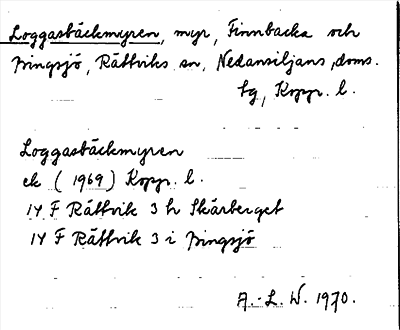 Loggasbäckmyren, myr, Finnbacka och
Bingsjö, Rättviks sn, Nedansiljans doms.
tg, Kopp. l.
Loggasbäckmyren
ek (1969) Kopp. l.
14 F Rättvik 3 h Skärberget
14 F Rättvik 3 i Bingsjö
A.-L. W. 1970.